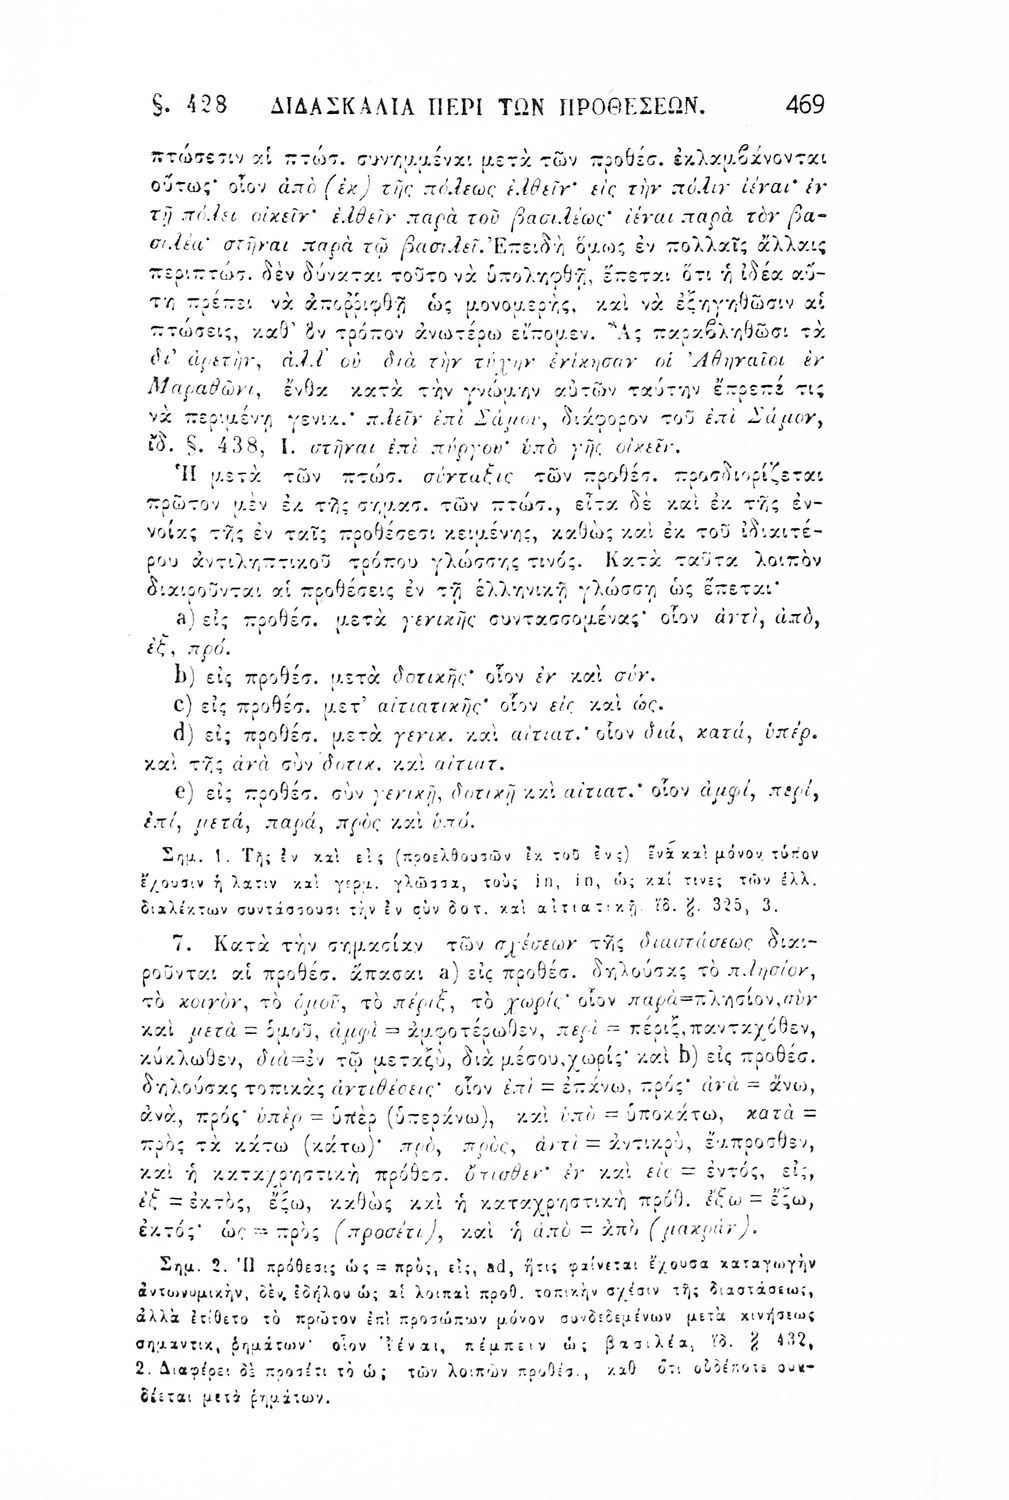 §. 428 ΔΙΔΑΣΚΑΛΙΑ ΠΕΡΙ ΤΩΝ ΠΡΟΘΕΣΕΩΝ. 469
πτώσεσιν αἱ πτώσ. συνημμέναι μετὰ τῶν προθέσ. ἐκλαμβάνονται
οὕτως· οἷον ἀπὸ (ἐκ) τῆς πόλεως ἐλθεῖν· εἰς τὴν πόλιν ἰέναι· ἐν
τῇ πόλει οἰκεῖν· ἐλθεῖν παρὰ τοῦ βασιλέως· ἰέναι παρὰ τὸν βα-
σιλέα· στῆναι παρὰ τῷ βασιλεῖ. Ἐπειδὴ ὅμως ἐν πολλαῖς ἄλλαις
περιπτώσ. δὲν δύναται τοῦτο νὰ ὑποληφθῇ, ἕπεται ὅτι ἡ ἰδέα αὕ-
τη πρέπει νὰ ἀποῤῥιφθῇ ὡς μονομερής, καὶ νὰ ἐξηγηθῶσιν αἱ
πτώσεις, καθ' ὃν τρόπον ἀνωτέρω εἴπομεν. Ἂς παραβληθῶσι τὰ
δι' ἀρετὴν, ἀλλ' οὐ διὰ τὴν τύχην ἐνίκησαν οἱ Ἀθηναῖοι ἐν
Μαραθῶνι, ἔνθα κατὰ τὴν γνώμην αὐτῶν ταύτην ἔπρεπέ τις
νὰ περιμένῃ γενικ.· πλεῖν ἐπὶ Σάμου, διάφορον τοῦ ἐπὶ Σάμον,
ἴδ. §. 438, I. στῆναι ἐπὶ πύργου· ὑπὸ γῆς οἰκεῖν.
Ἡ μετὰ τῶν πτώσ. σύνταξις τῶν προθέσ. προσδιορίζεται
πρῶτον μὲν ἐκ τῆς σημασ. τῶν πτώσ., εἶτα δὲ καὶ ἐκ τῆς ἐν-
νοίας τῆς ἐν ταῖς προθέσεσι κειμένης, καθὼς καὶ ἐκ τοῦ ἰδιαιτέ-
ρου ἀντιληπτικοῦ τρόπου γλώσσης τινός. Κατὰ ταῦτα λοιπὸν
διαιροῦνται αἱ προθέσεις ἐν τῇ ἑλληνικῇ γλώσσῃ ὡς ἕπεται·
a) εἰς προθέσ. μετὰ γενικῆς συντασσομένας· οἷον ἀντὶ, ἀπὸ,
ἐξ, πρό.
b) εἰς προθέσ. μετὰ δοτικῆς· οἷον ἐν καὶ σύν.
c) εἰς προθέσ. μετ' αἰτιατικῆς· οἷον εἰς καὶ ὡς.
d) εἰς προθέσ. μετὰ γενικ. καὶ αἰτιατ.· οἷον διά, κατά, ὑπέρ.
καὶ τῆς ἀνὰ σὺν δοτικ. καὶ αἰτιατ.
e) εἰς προθέσ. σὺν γενικῇ, δοτικῇ καὶ αἰτιατ.· οἷον ἀμφί, περί,
ἐπί, μετά, παρά, πρὸς καὶ ὑπό.
Σημ. 1. Τῆς ἐν καὶ εἰς (προελθουσῶν ἐκ τοῦ ἐνς) ἕνα καὶ μόνον τύπον
ἔχουσιν ἡ λατιν καὶ γερμ. γλῶσσα, τοὺς in, in, ὡς καί τινες τῶν ἑλλ.
διαλέκτων συντάσσουσι τὴν ἐν σὺν δοτ. καὶ αἰτιατικῇ. ἴδ. §. 325, 3.
7. Κατὰ τὴν σημασίαν τῶν σχέσεων τῆς διαστάσεως διαι-
ροῦνται αἱ προθέσ. ἅπασαι a) εἰς προθέσ. δηλούσας τὸ πλησίον,
τὸ κοινὸν, τὸ ὁμοῦ, τὸ πέριξ, τὸ χωρίς· οἷον παρὰ=πλησίον, σὺν
καὶ μετὰ = ὁμοῦ, ἀμφὶ = ἀμφοτέρωθεν, περὶ = πέριξ, πανταχόθεν,
κύκλωθεν, διὰ=ἐν τῷ μεταξὺ, διὰ μέσου, χωρίς· καὶ b) εἰς προθέσ.
δηλούσας τοπικὰς ἀντιθέσεις· οἷον ἐπὶ = ἐπάνω, πρός· ἀνὰ = ἄνω,
ἀνὰ, πρός· ὑπὲρ = ὑπὲρ (ὑπεράνω), καὶ ὑπὸ = ὑποκάτω, κατὰ =
πρὸς τὰ κάτω (κάτω)· πρὸ, πρὸς, ἀντὶ = ἀντικρὺ, ἔμπροσθεν,
καὶ ἡ καταχρηστικὴ πρόθεσ. ὄπισθεν· ἐν καὶ εἰς = ἐντός, εἰς,
ἐξ = ἐκτὸς, ἔξω, καθὼς καὶ ἡ καταχρηστικὴ πρόθ. ἔξω = ἔξω,
ἐκτός· ὡς = πρὸς (προσέτι), καὶ ἡ ἀπὸ = ἀπὸ (μακράν).
Σημ. 2. Ἡ πρόθεσις ὡς = πρὸς, εἰς, ad, ἥτις φαίνεται ἔχουσα καταγωγὴν
ἀντωνυμικὴν, δὲν ἐδήλου ὡς αἱ λοιπαὶ προθ. τοπικὴν σχέσιν τῆς διαστάσεως,
ἀλλὰ ἐτίθετο τὸ πρῶτον ἐπὶ προσώπων μόνον συνδεδεμένων μετὰ κινήσεως
σημαντικ, ῥημάτων· οἷον ἰέναι, πέμπειν ὡς βασιλέα, ἴδ. § 432,
2. Διαφέρει δὲ προσέτι τὸ ὡς τῶν λοιπῶν προθέσ., καθ ὅτι οὐδέποτε συν-
δέεται μετὰ ῥημάτων.